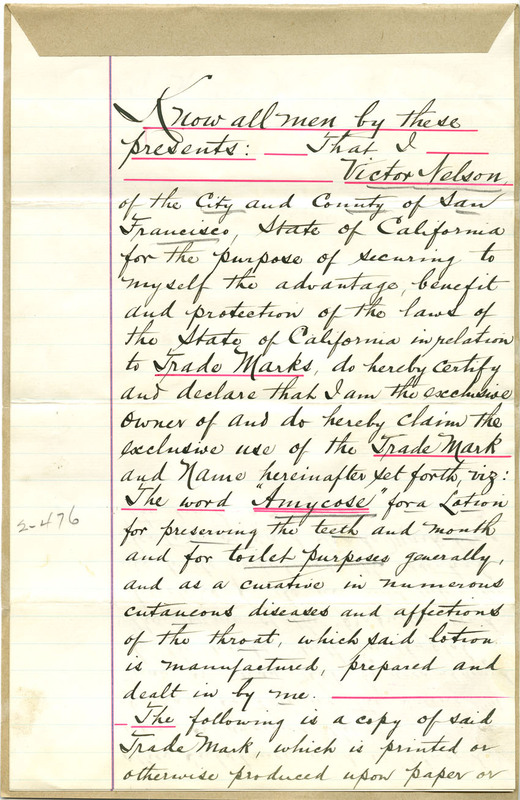 Know all men by these
presents: That I
Victor Nelson,
of the City and County of San
Francisco, State of California
for the purpose of securing to
myself the advantage, benefit
and protection of the laws of
the State of California in relation
to Trade Marks, do hereby certify
and declare that I am the exclusive
owner of and do hereby claim the
exclusive use of the Trade Mark
and Name hereinafter set forth, viz:
The word "Amycose" for a Lotion
2-476
for preserving the teeth and mouth
and for toilet purposes generally,
and as a curative in numerous
cutaneous diseases and affections
of the throat, which said lotion
is manufactured, prepared and
dealt in by me.
The following is a copy of said
Trade Mark, which is printed or
otherwise produced upon paper or